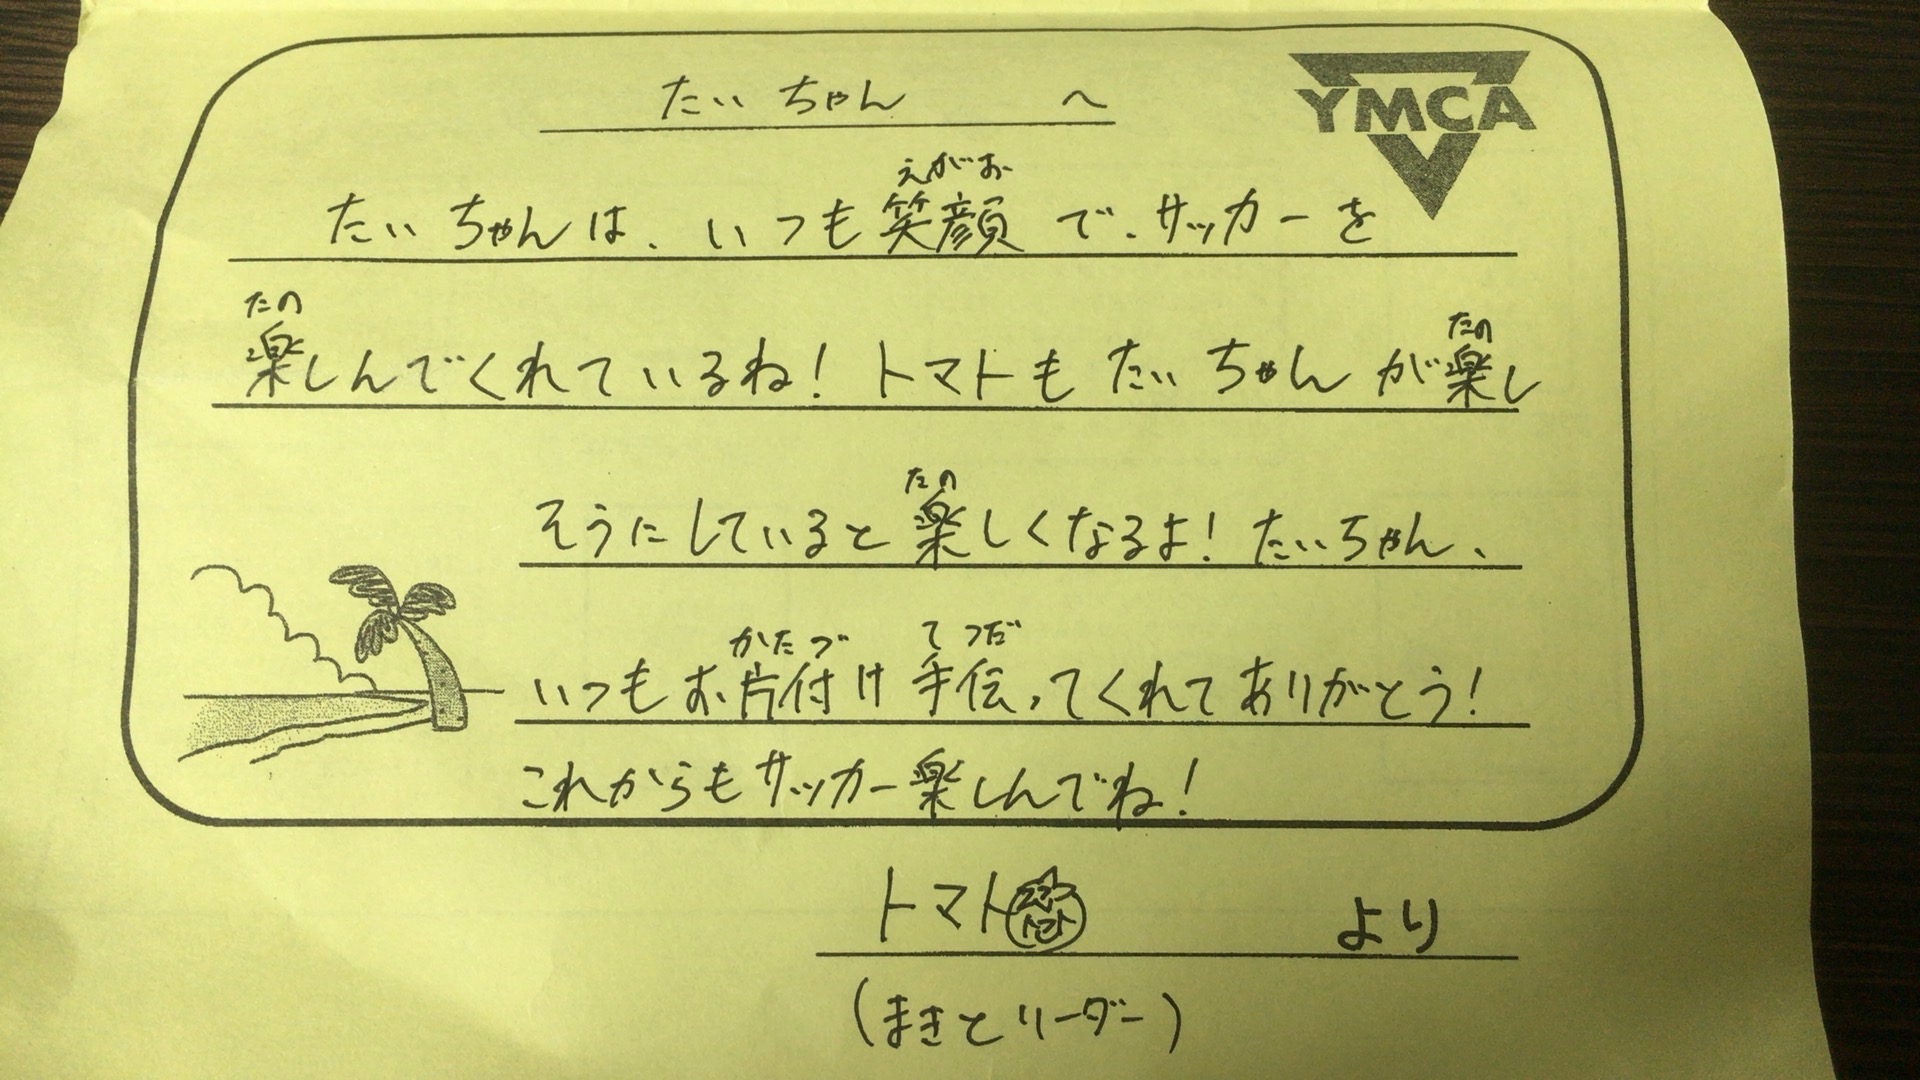 たいちゃん へ
YMCA
えがお
たいちゃんは、いつも笑顔で、サッカーを
たの たの
楽しんでくれているね!トマトもたいちゃんが楽し
たの
そうにしていると楽しくなるよ!たいちゃん、
かたづ てつだ
いつもお片付け手伝ってくれてありがとう!
これからもサッカー楽しんでね!
トマト より
(まきとリーダー)